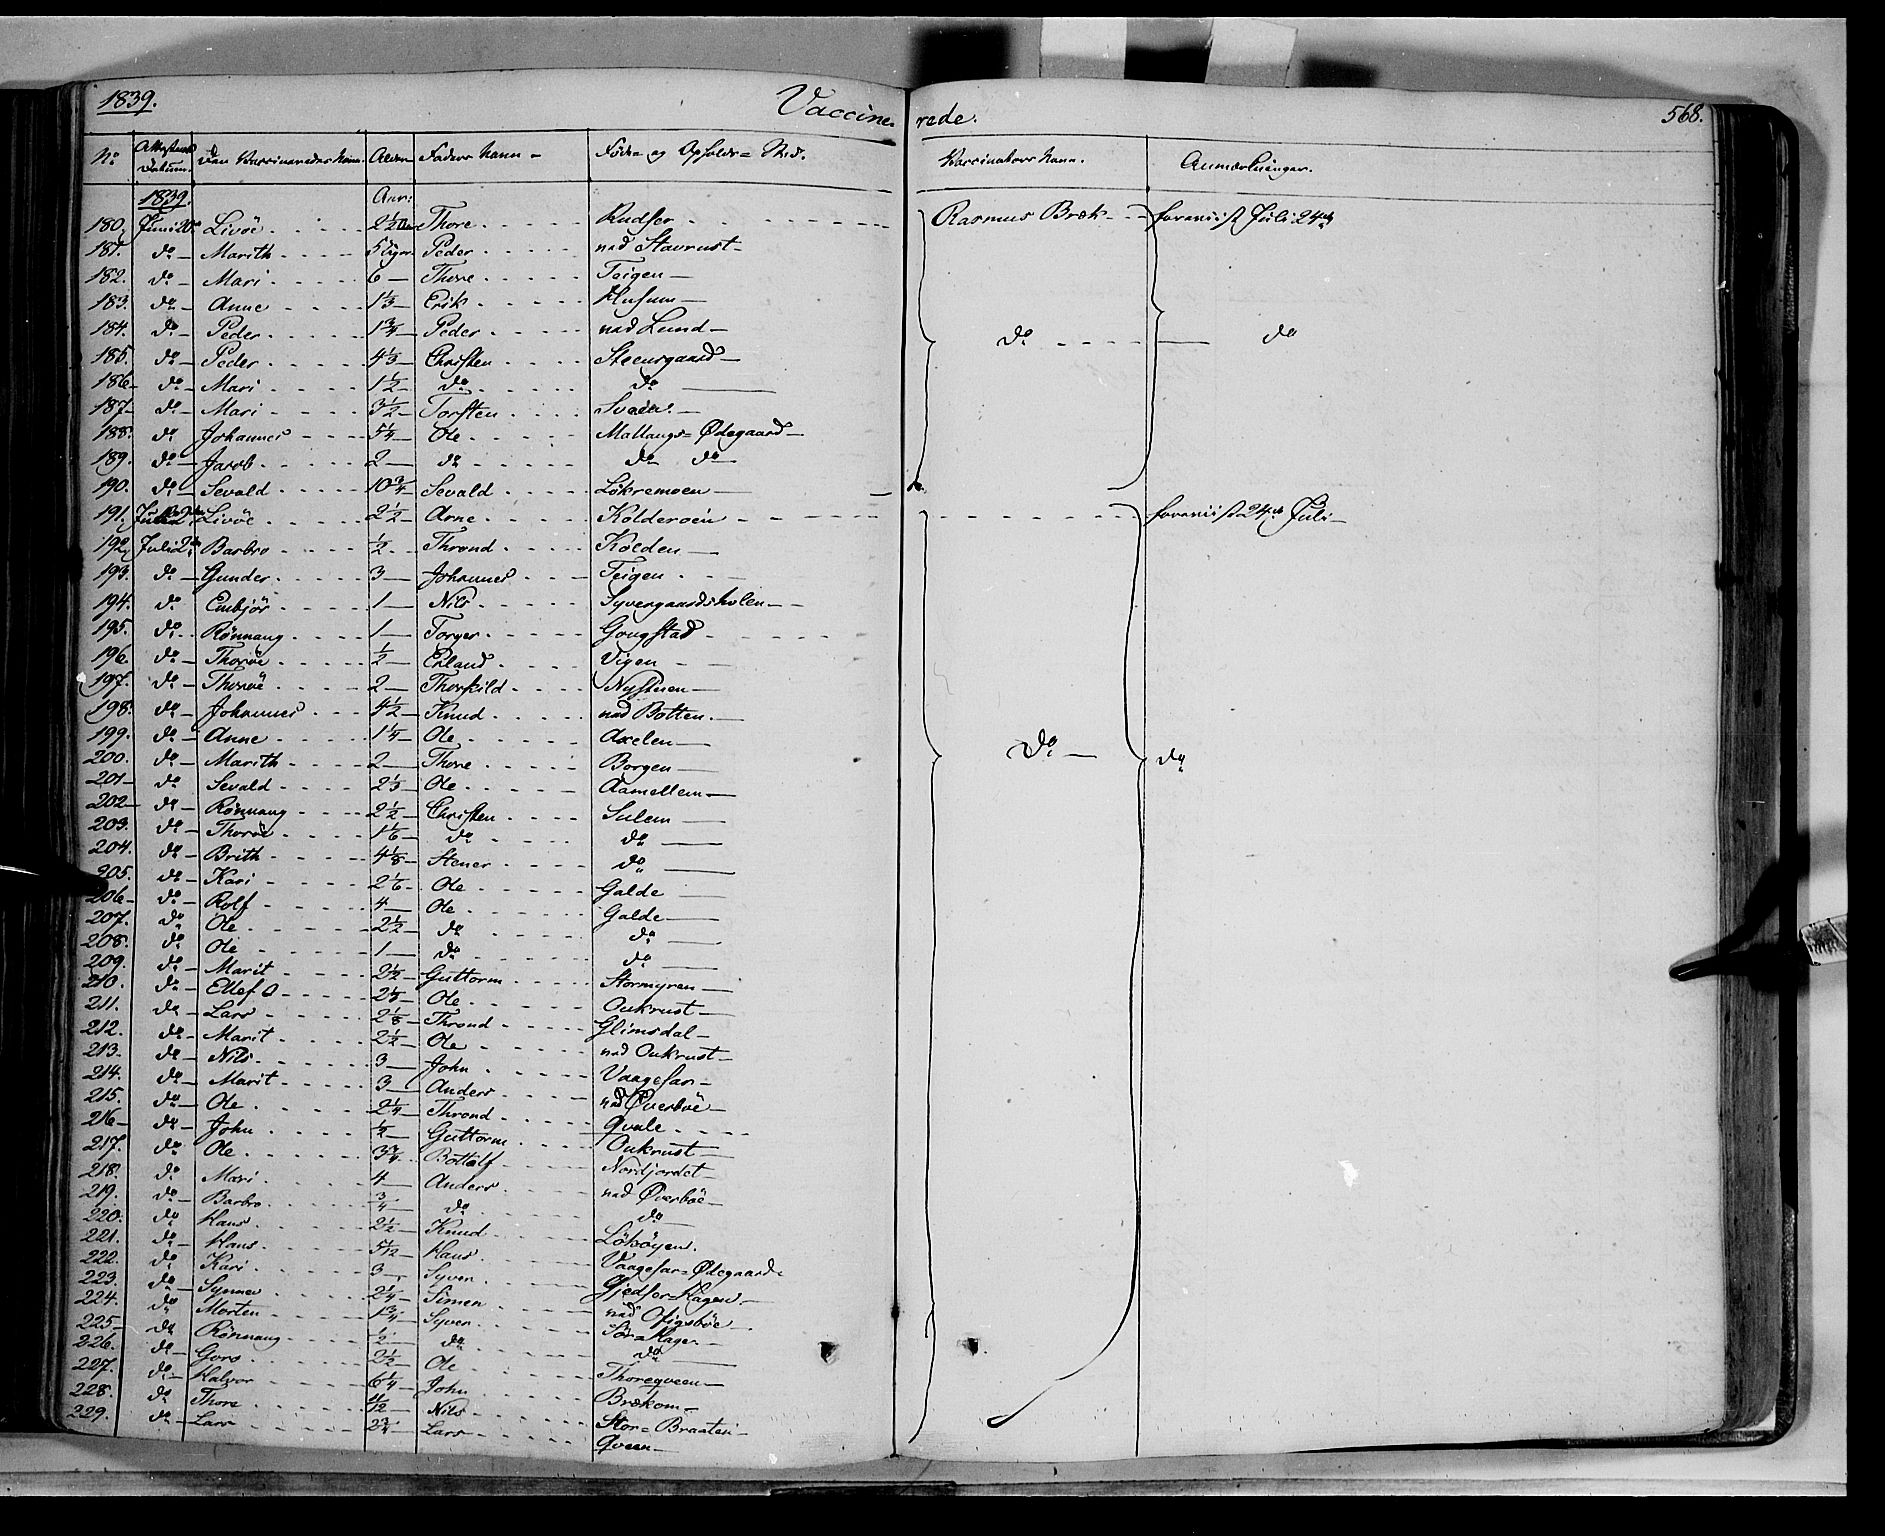 1839. Vaccine- rede. 568.
No Attestens Datum. Den Vaccineredes Navn. Alder Faders Navn - Føde- og Opholds-Sted. Vaccinators Navn. Anmærkninger.
1839. Aar:
180. Juni 20 Livöe 2 1/2 Thore Rudser Rasmus Bræk foreviist Juli 24de
181. do Marith 5 Peder ned Stavrust
182. do Mari 6 Thore Teigen
183. do Anne 1 1/3 Erik Husum
184. do Peder 1 3/4 Peder ned Lund do do
185. do Peder 4 1/3 Christen Steensgaard
186. do Mari 1 1/2 do do
187. do Mari 3 1/2 Torsten
188. do Johannes 5 1/4 Ole Mallangs-Ødegaard
189. do Jacob 2 do do do
190. do Sevald 10 3/4 Sevald Lökremoen
191. Livöe 2 1/2 Arne Kolderoen foreviist 24de Juli
192. Juli 2 Barbro 1/2 Thrond Kolden
193. do Gunder 3 Johannes Teigen
194. do Embjör 1 Nils Syvergaardsholen
195. do Rönnaug 1 Torger Gougstad
196. do Thoröe 1/2 Erland Vigen
197. do Thoröe 2 Thorkild Nystuen
198. do Johannes 4 1/2 Knud ned Botten
199. do Anne 1 1/4 Ole Axelen do do
200. do Marith 2 Thore Borgen
201. do Sevald 2 1/3 Ole Aamellem
202. do Rönnaug 2 1/2 Christen Sulem
203. do Thoröe 1 1/6 do do
204. do Brith 4 1/8 Stener do
205. do Kari 2 1/6 Ole Galde
206. do Rolf 4 Ole Galde
207. do Ole 2 1/2 do do
208. do Ole 1 do do
209. do Marit 2 1/2 Guttorm Stormyren
210. do Ellef O 2 1/3 Ole Oukrust
211. do Lars 2 1/8 Thrond Glimsdal
212. do Marit 2 1/2 Ole ned Oukrust
213. do Nils 3 John Vaagesar
214. do Marit 3 Anders ned Øverböe
215. do Ole 2 1/4 Thrond Qvale
216. do John 1/2 Guttorm Oukrust
217. do Ole 3 3/4 Bottolf Nordjordet
218. do Mari 4 Anders ned Øverböe
219. do Barbro 3/4 do do
220. do Hans 2 1/2 Knud Lököyen
221. do Hans 5/12 Hans Vaagesar-Ødegaard
222. do Kari 3 Syver Gjedser-Hagen
223. do Synnev 2 1/4 Simen
224. do Morten 1 3/4 Syver Sör-Hage
225. do Rönnaug 1/2 do do
226. do Goro 2 1/2 Ole Thoreqveen
227. do Halvor 6 1/4 John Brækom
228. do Thore Nils Stor-Braaten
229. do Lars 2 3/4 Lars Qveen